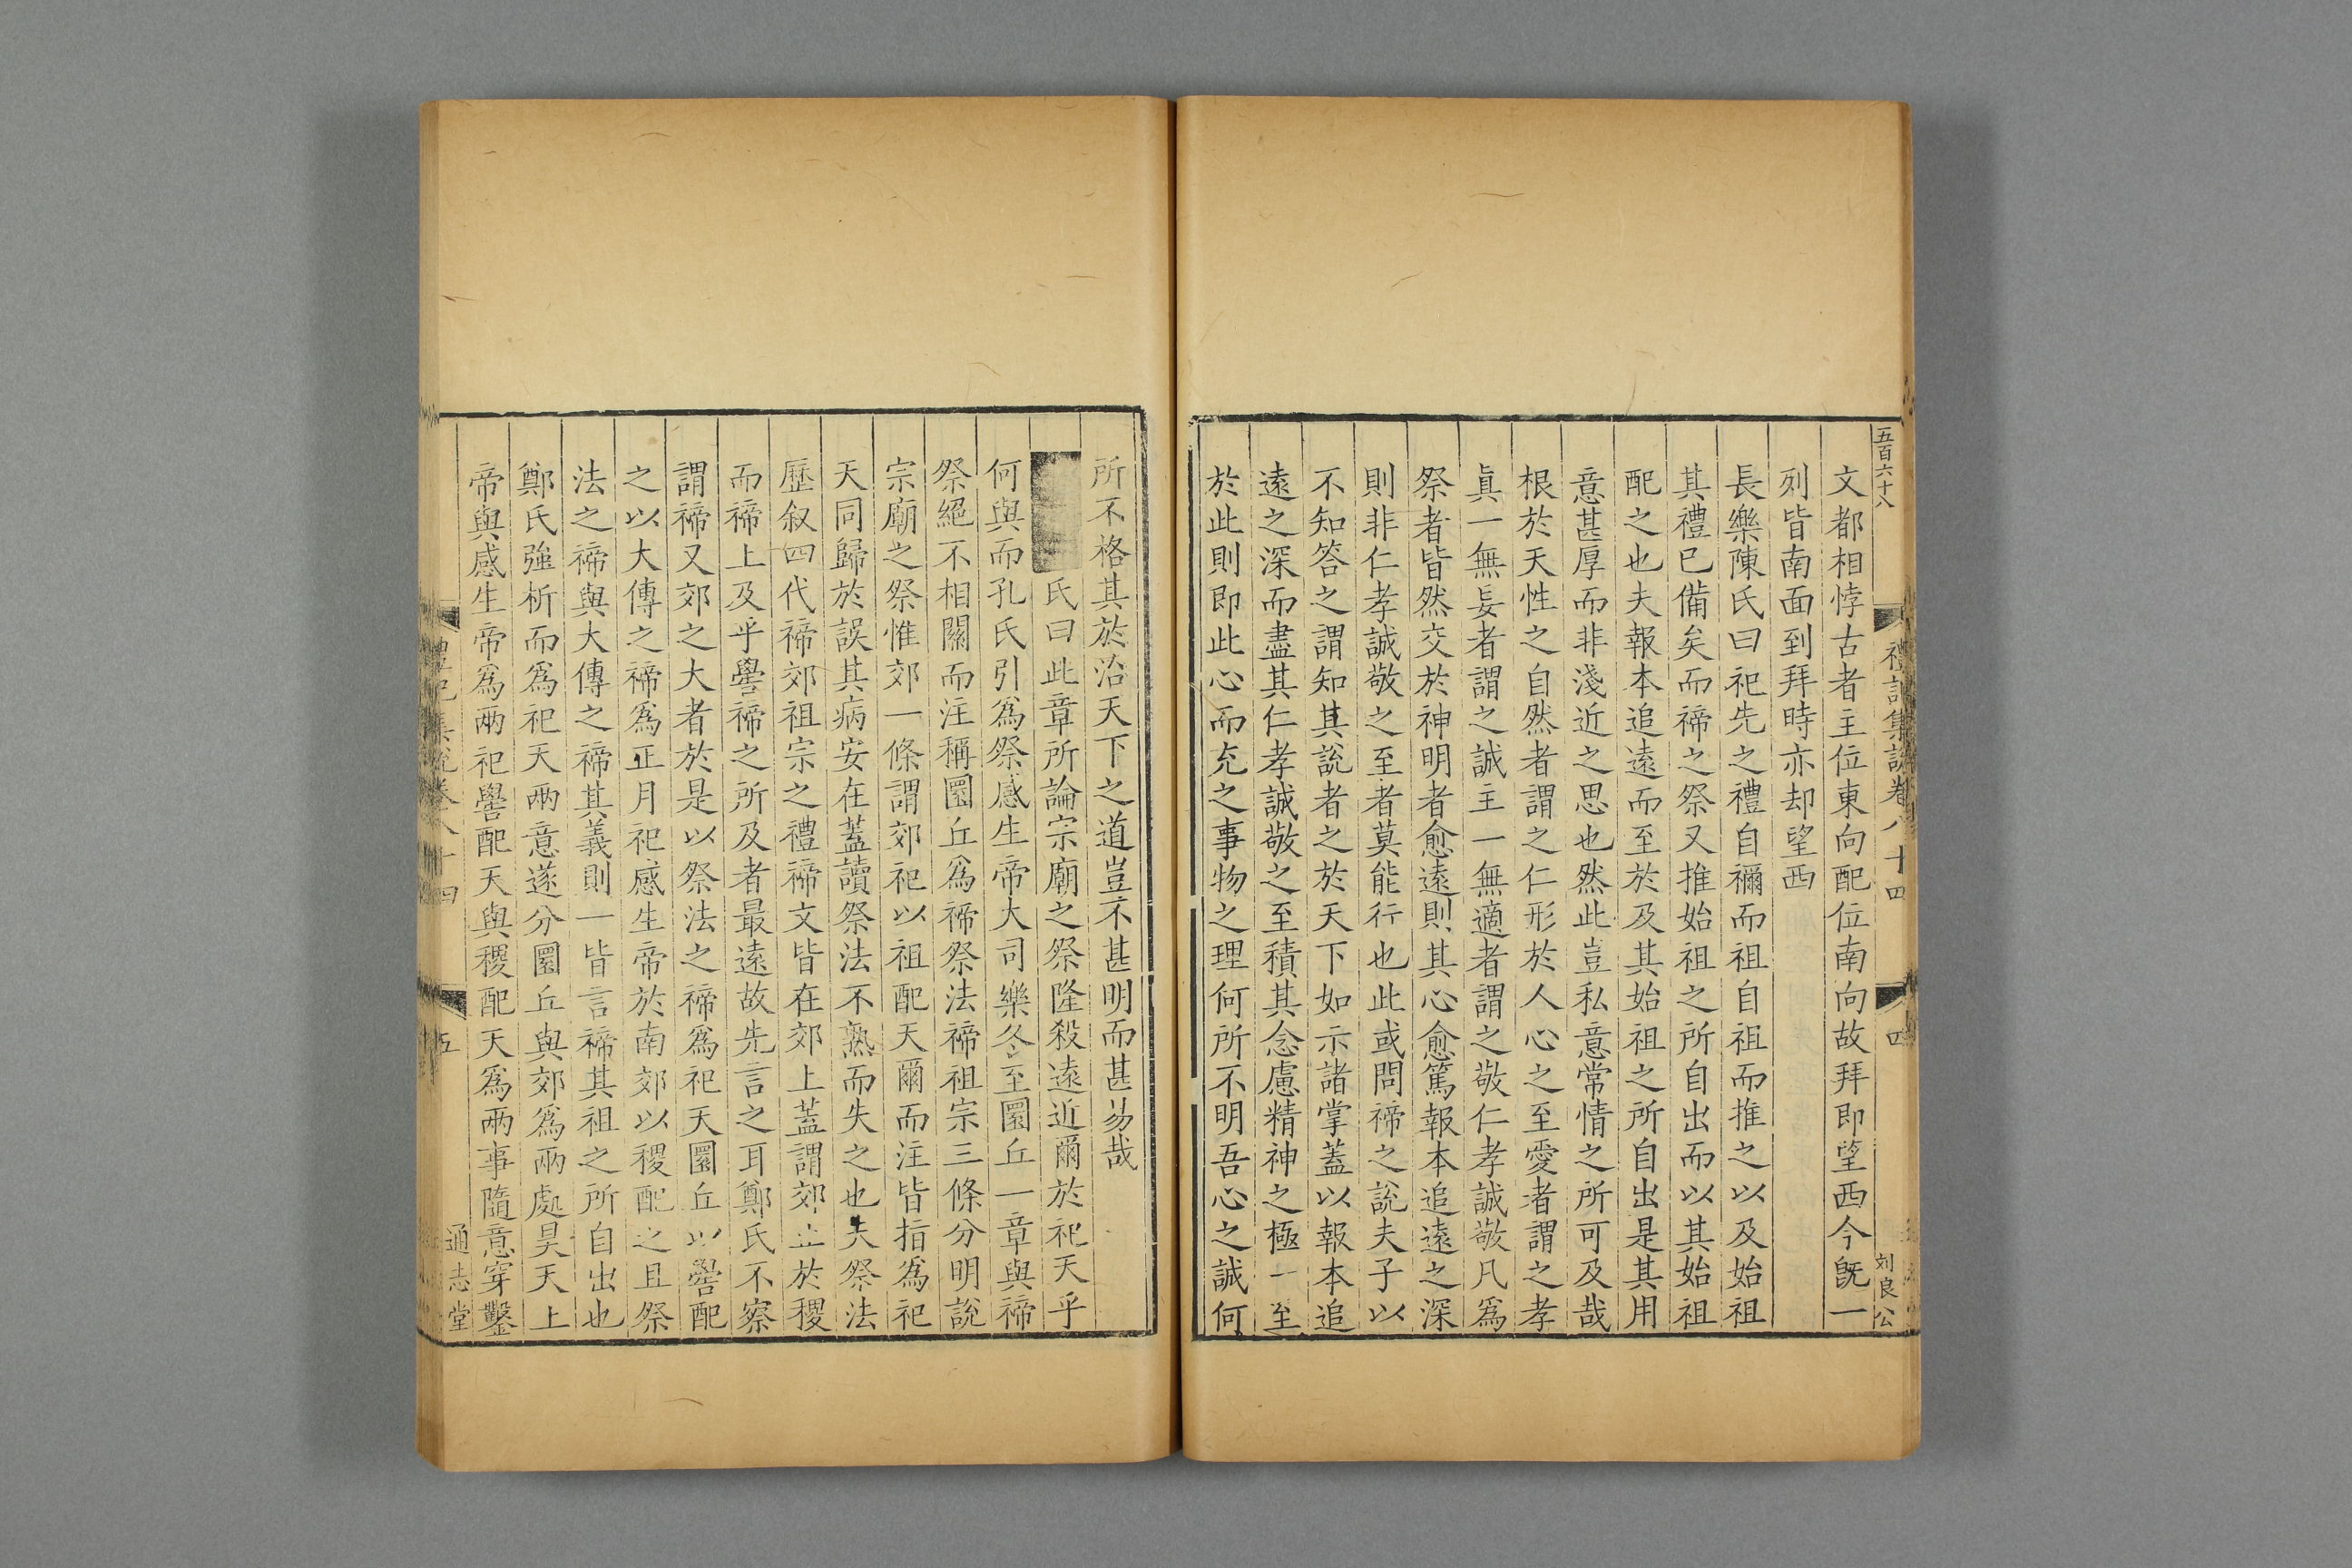 五百六十八
禮記集說卷八十四
四
刘良公
文都相悖古者主位東向配位南向故拜即望西今既一
列皆南面到拜時亦却望西
長樂陳氏曰祀先之禮自禰而祖自祖而推之以及始祖
其禮已備矣而禘之祭又推始祖之所自出而以其始祖
配之也夫報本追遠而至於及其始祖之所自出是其用
意甚厚而非淺近之思也然此豈私意常情之所可及哉
根於天性之自然者謂之仁形於人心之至愛者謂之孝
眞一無妄者謂之誠主一無適者謂之敬仁孝誠敬凡爲
祭者皆然交於神明者愈遠則其心愈篤報本追遠之深
則非仁孝誠敬之至者莫能行也此或問禘之說夫子以
不知答之謂知其說者之於天下如示諸掌蓋以報本追
遠之深而盡其仁孝誠敬之至積其念慮精神之極一至
於此則即此心而充之事物之理何所不明吾心之誠何
所不格其於治天下之道豈不甚明而甚易哉
氏曰此章所論宗廟之祭隆殺遠近爾於祀天乎
何與而孔氏引爲祭感生帝大司樂冬至圜丘一章與禘
祭絕不相關而注稱圜丘爲禘祭法禘祖宗三條分明說
宗廟之祭惟郊一條謂郊祀以祖配天爾而注皆指爲祀
天同歸於誤其病安在蓋讀祭法不熟而失之也夫祭法
歷叙四代禘郊祖宗之禮禘文皆在郊上蓋謂郊止於稷
而禘上及乎嚳禘之所及者最遠故先言之耳鄭氏不察
謂禘又郊之大者於是以祭法之禘爲祀天圜丘以嚳配
之以大傳之禘爲正月祀感生帝於南郊以稷配之且祭
法之禘與大傳之禘其義則一皆言禘其祖之所自出也
鄭氏強析而爲祀天兩意遂分圜丘與郊爲兩處昊天上
帝與感生帝爲兩祀嚳配天與稷配天爲兩事隨意穿鑿
禮記集說卷八十四
五
通志堂